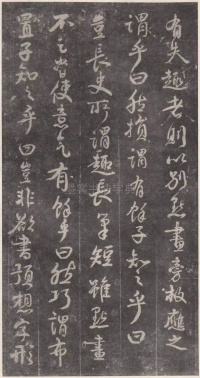 有失趣者則以别點畫旁救應之
謂乎曰然損謂有餘子知之乎曰
豈長史所謂趣長筆短雖點畫
不足常使意氣有餘乎曰然巧謂布
置子知之乎曰豈非欲書預想字形